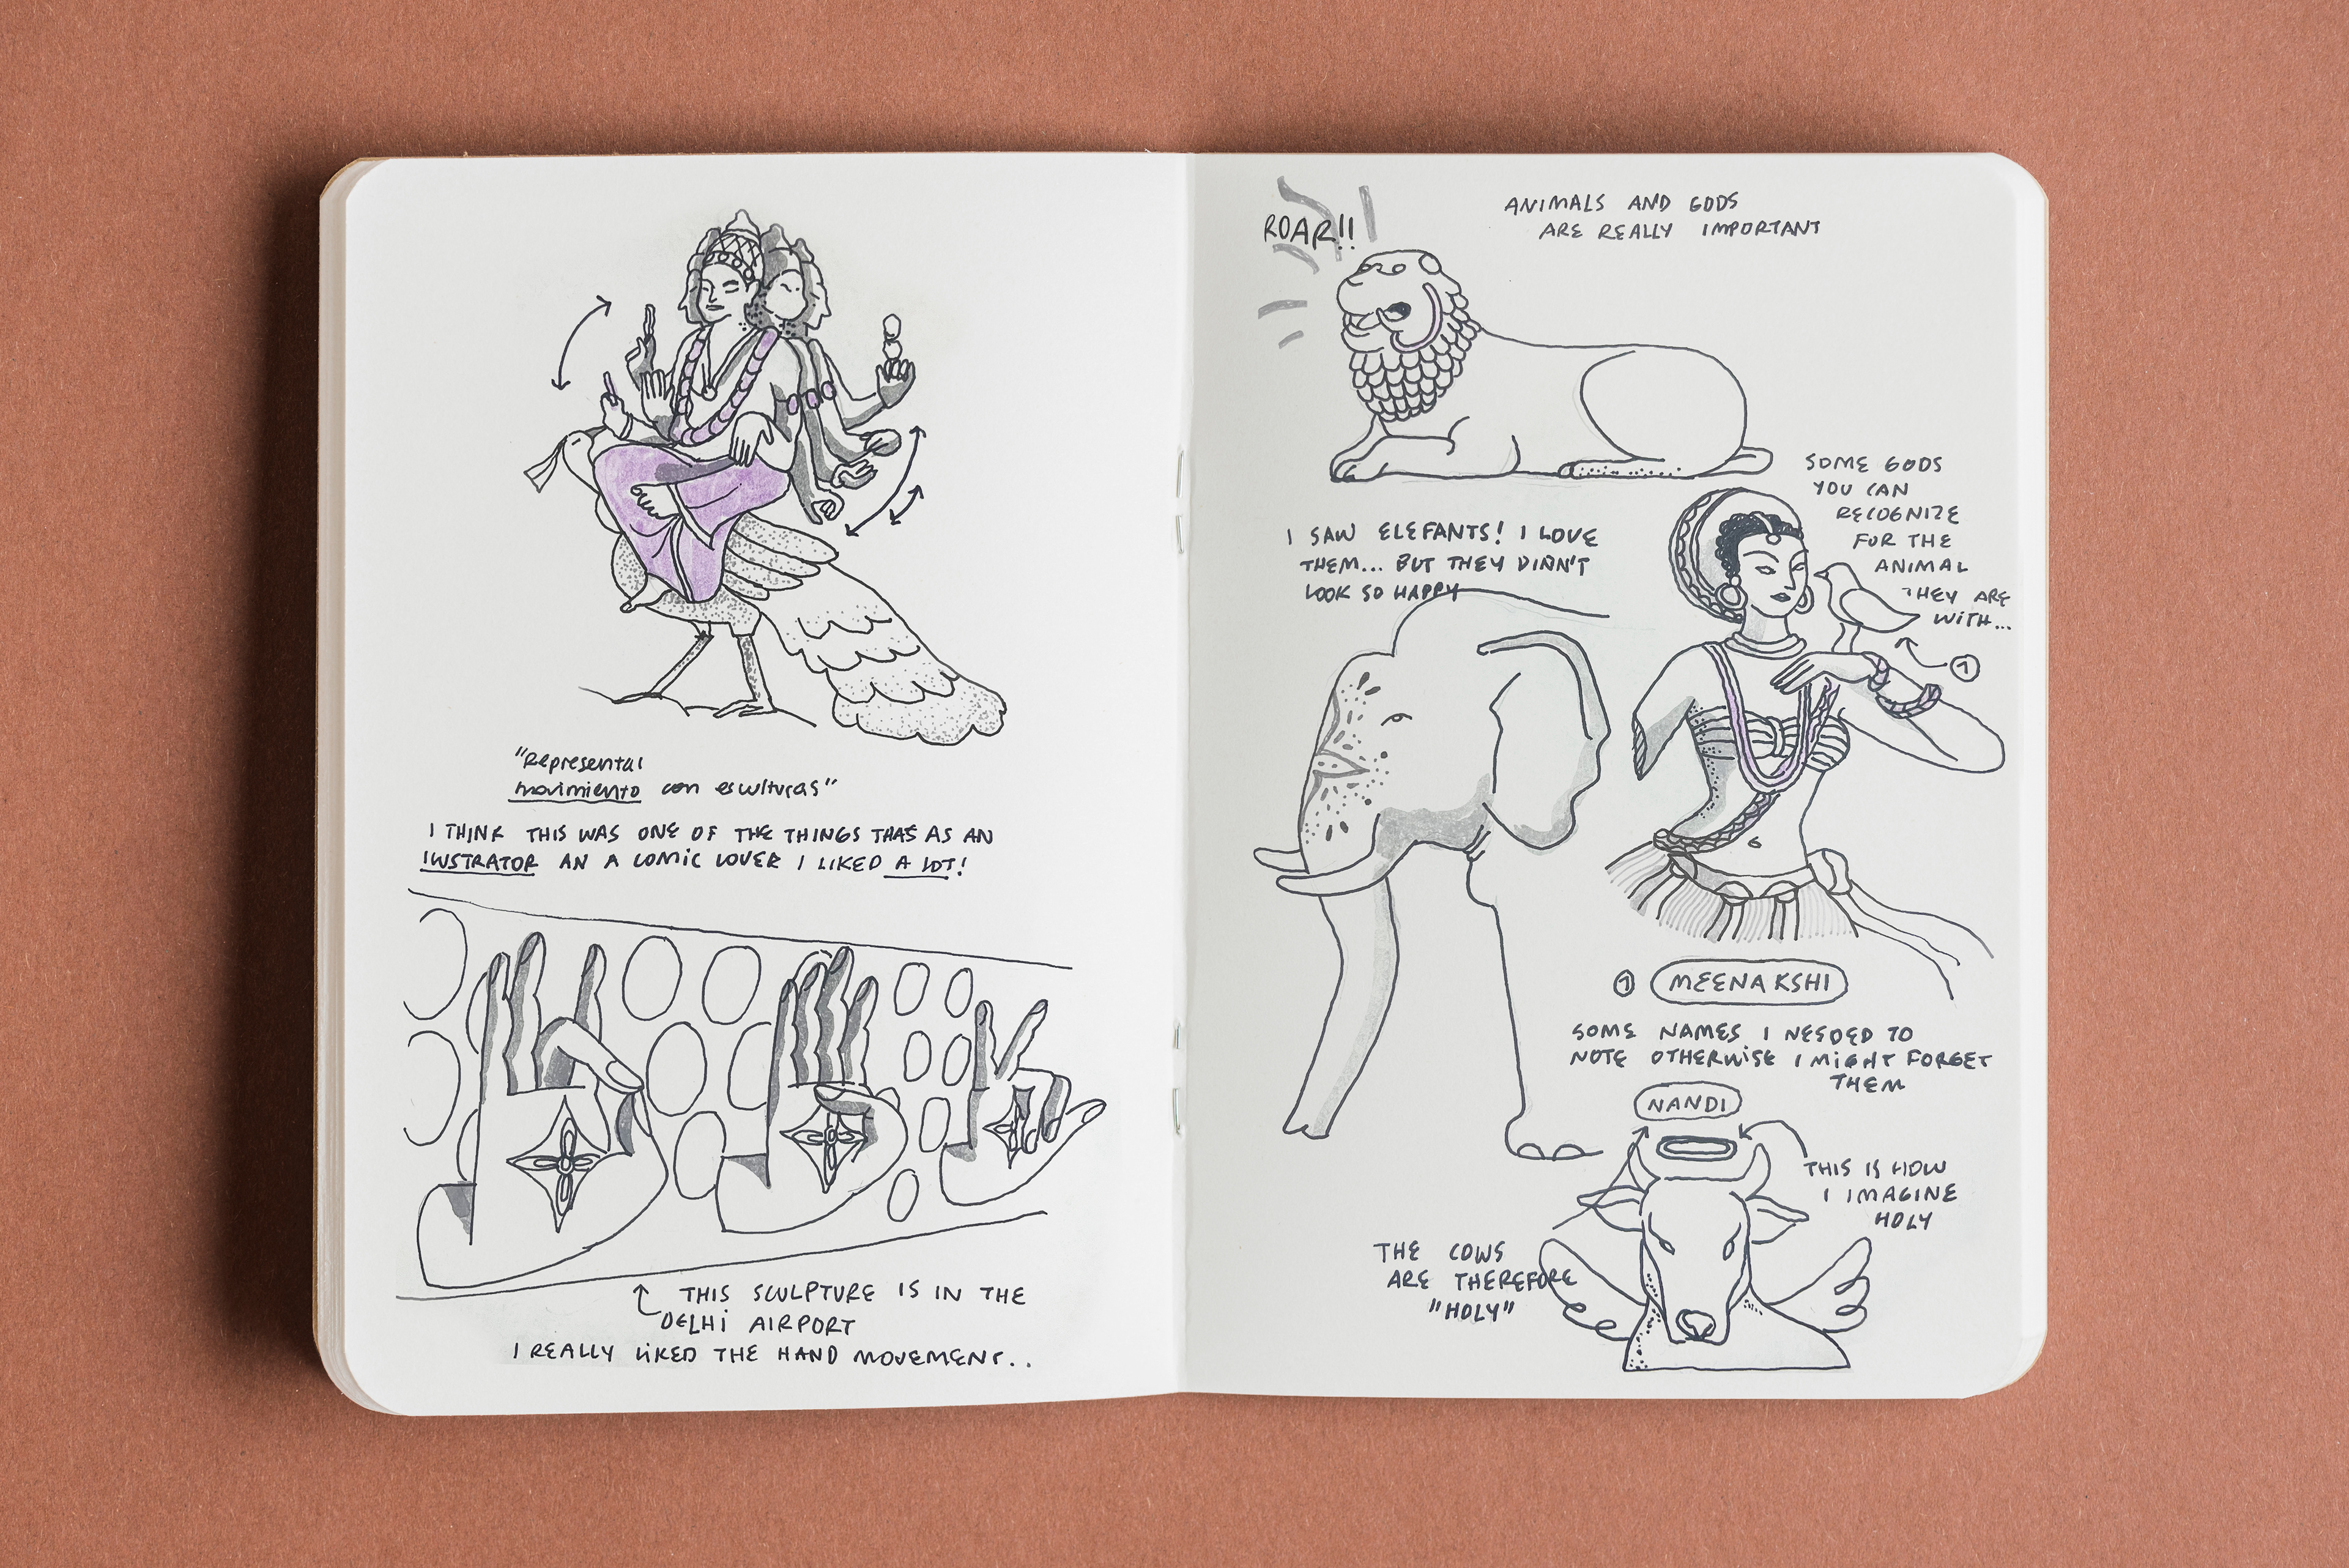 "Representar
movimiento con esculturas"
I THINK THIS WAS ONE OF THE THINGS THAS AS AN
ILUSTRATOR AN A COMIC LOVER I LIKED A LOT!
THIS SCULPTURE IS IN THE
DELHI AIRPORT
I REALLY LIKED THE HAND MOVEMENT..
ROAR!!
ANIMALS AND GODS
ARE REALLY IMPORTANT
SOME GODS
YOU CAN
RECOGNIZE
FOR THE
ANIMAL
THEY ARE
WITH...
1
I SAW ELEFANTS! I LOVE
THEM... BUT THEY DINN'T
LOOK SO HAPPY
1 MEENAKSHI
SOME NAMES I NEEDED TO
NOTE OTHERWISE I MIGHT FORGET
THEM
NANDI
THIS IS HOW
I IMAGINE
HOLY
THE COWS
ARE THEREFORE
"HOLY"